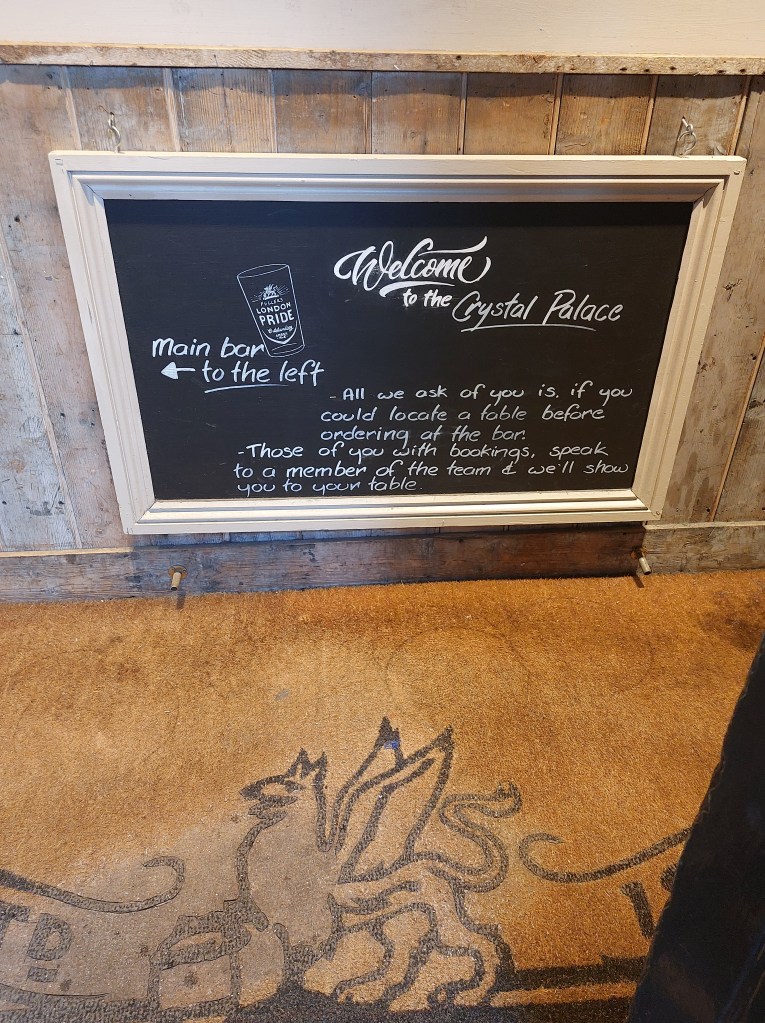 Welcome
to the Crystal Palace
FULLER'S
LONDON
PRIDE
Main bar
to the left
- All we ask of you is, if you
could locate a table before
ordering at the bar.
- Those of you with bookings, speak
to a member of the team & we'll show
you to your table.